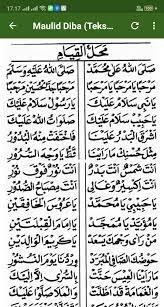 17.17
Maulid Diba (Teks...
مَحَلُّ الْقِيَامِ
صَلَّى اللهُ عَلَى مُحَمَّدْ صَلَّى اللهُ عَلَيْهِ وَسَلَّمْ
مَرْحَبًا يَا مَرْحَبًا يَا مَرْحَبًا مَرْحَبًا جَدَّ الْحُسَيْنِ مَرْحَبًا
يَا نَبِي سَلَامْ عَلَيْكَ يَا رَسُولْ سَلَامْ عَلَيْكَ
يَا حَبِيبْ سَلَامْ عَلَيْكَ صَلَوَاتُ اللهِ عَلَيْكَ
أَشْرَقَ الْبَدْرُ عَلَيْنَا فَاخْتَفَتْ مِنْهُ الْبُدُورُ
مِثْلَ حُسْنِكَ مَا رَأَيْنَا قَطُّ يَا وَجْهَ السُّرُورِ
أَنْتَ شَمْسٌ أَنْتَ بَدْرٌ أَنْتَ نُورٌ فَوْقَ نُورِ
أَنْتَ إِكْسِيرٌ وَغَالِي أَنْتَ مِصْبَاحُ الصُّدُورِ
يَا حَبِيبِي يَا مُحَمَّدْ يَا عَرُوسَ الْخَافِقَيْنِ
يَا مُؤَيَّدْ يَا مُمَجَّدْ يَا إِمَامَ الْقِبْلَتَيْنِ
مَنْ رَأَى وَجْهَكَ يَسْعَدْ يَا كَرِيمَ الْوَالِدَيْنِ
حَوْضُكَ الصَّافِي الْمُبَرَّدْ وِرْدُنَا يَوْمَ النُّشُورِ
مَا رَأَيْنَا الْعِيسَ حَنَّتْ بِالسُّرَى إِلَّا إِلَيْكَ